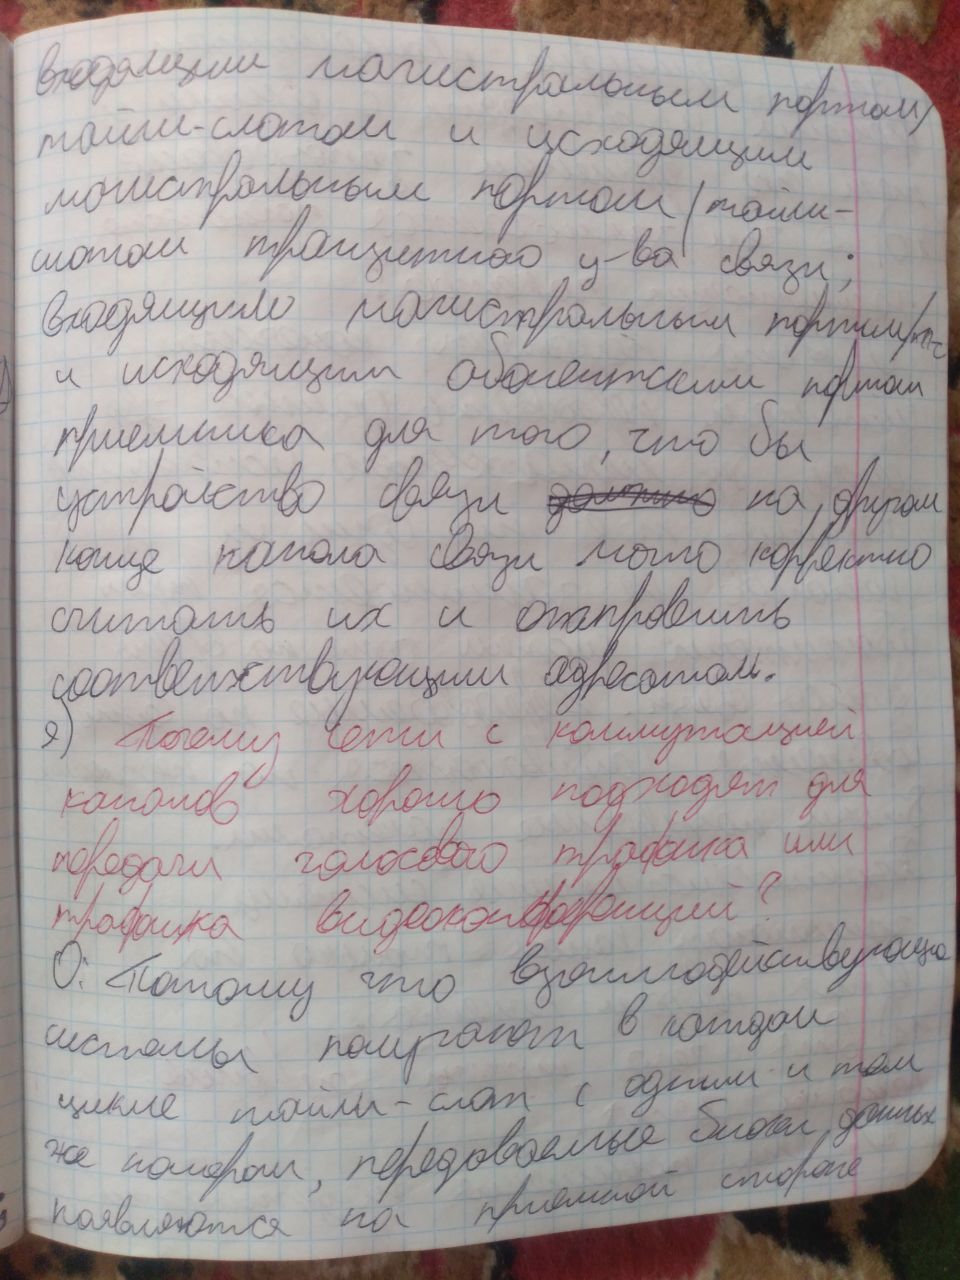 входящим магистральным портом/
тайм-слотом и исходящим
магистральным портом/тайм-
слотом транзитного у-ва связи;
входящим магистральным портом/тс
и исходящим абонентским портом
приемника для того, что бы
устройство связи на другом
конце канала связи могло корректно
считать их и отправить
соответствующим адресатам.
я) Почему сети с коммутацией
каналов хорошо подходят для
передачи голосового трафика или
трафика видеоконференций?
О: Потому что взаимодействующие
системы получают в каждом
цикле тайм-слот с одним и тем
же номером, передаваемые блоки данных
появляются на приемной стороне